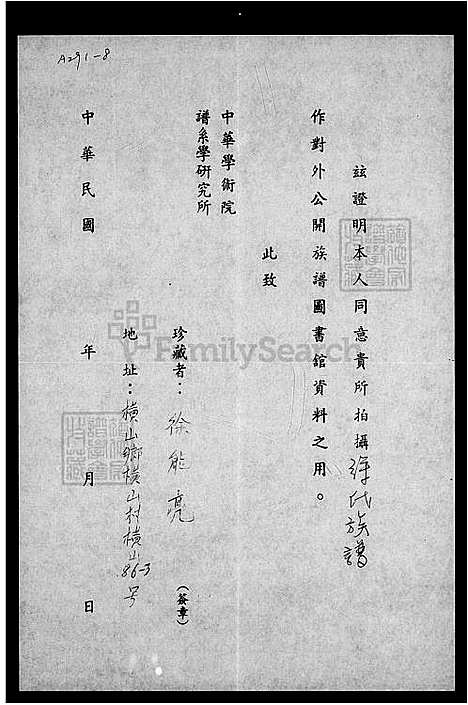 A291-8
玆證明本人同意貴所拍攝徐氏族譜
作對外公開族譜圖書館資料之用。
此致
中華學術院
譜系學研究所
珍藏者：徐能亮（簽章）
地址：橫山鄉橫山村橫山86-3號
中華民國 年 月 日
FamilySearch